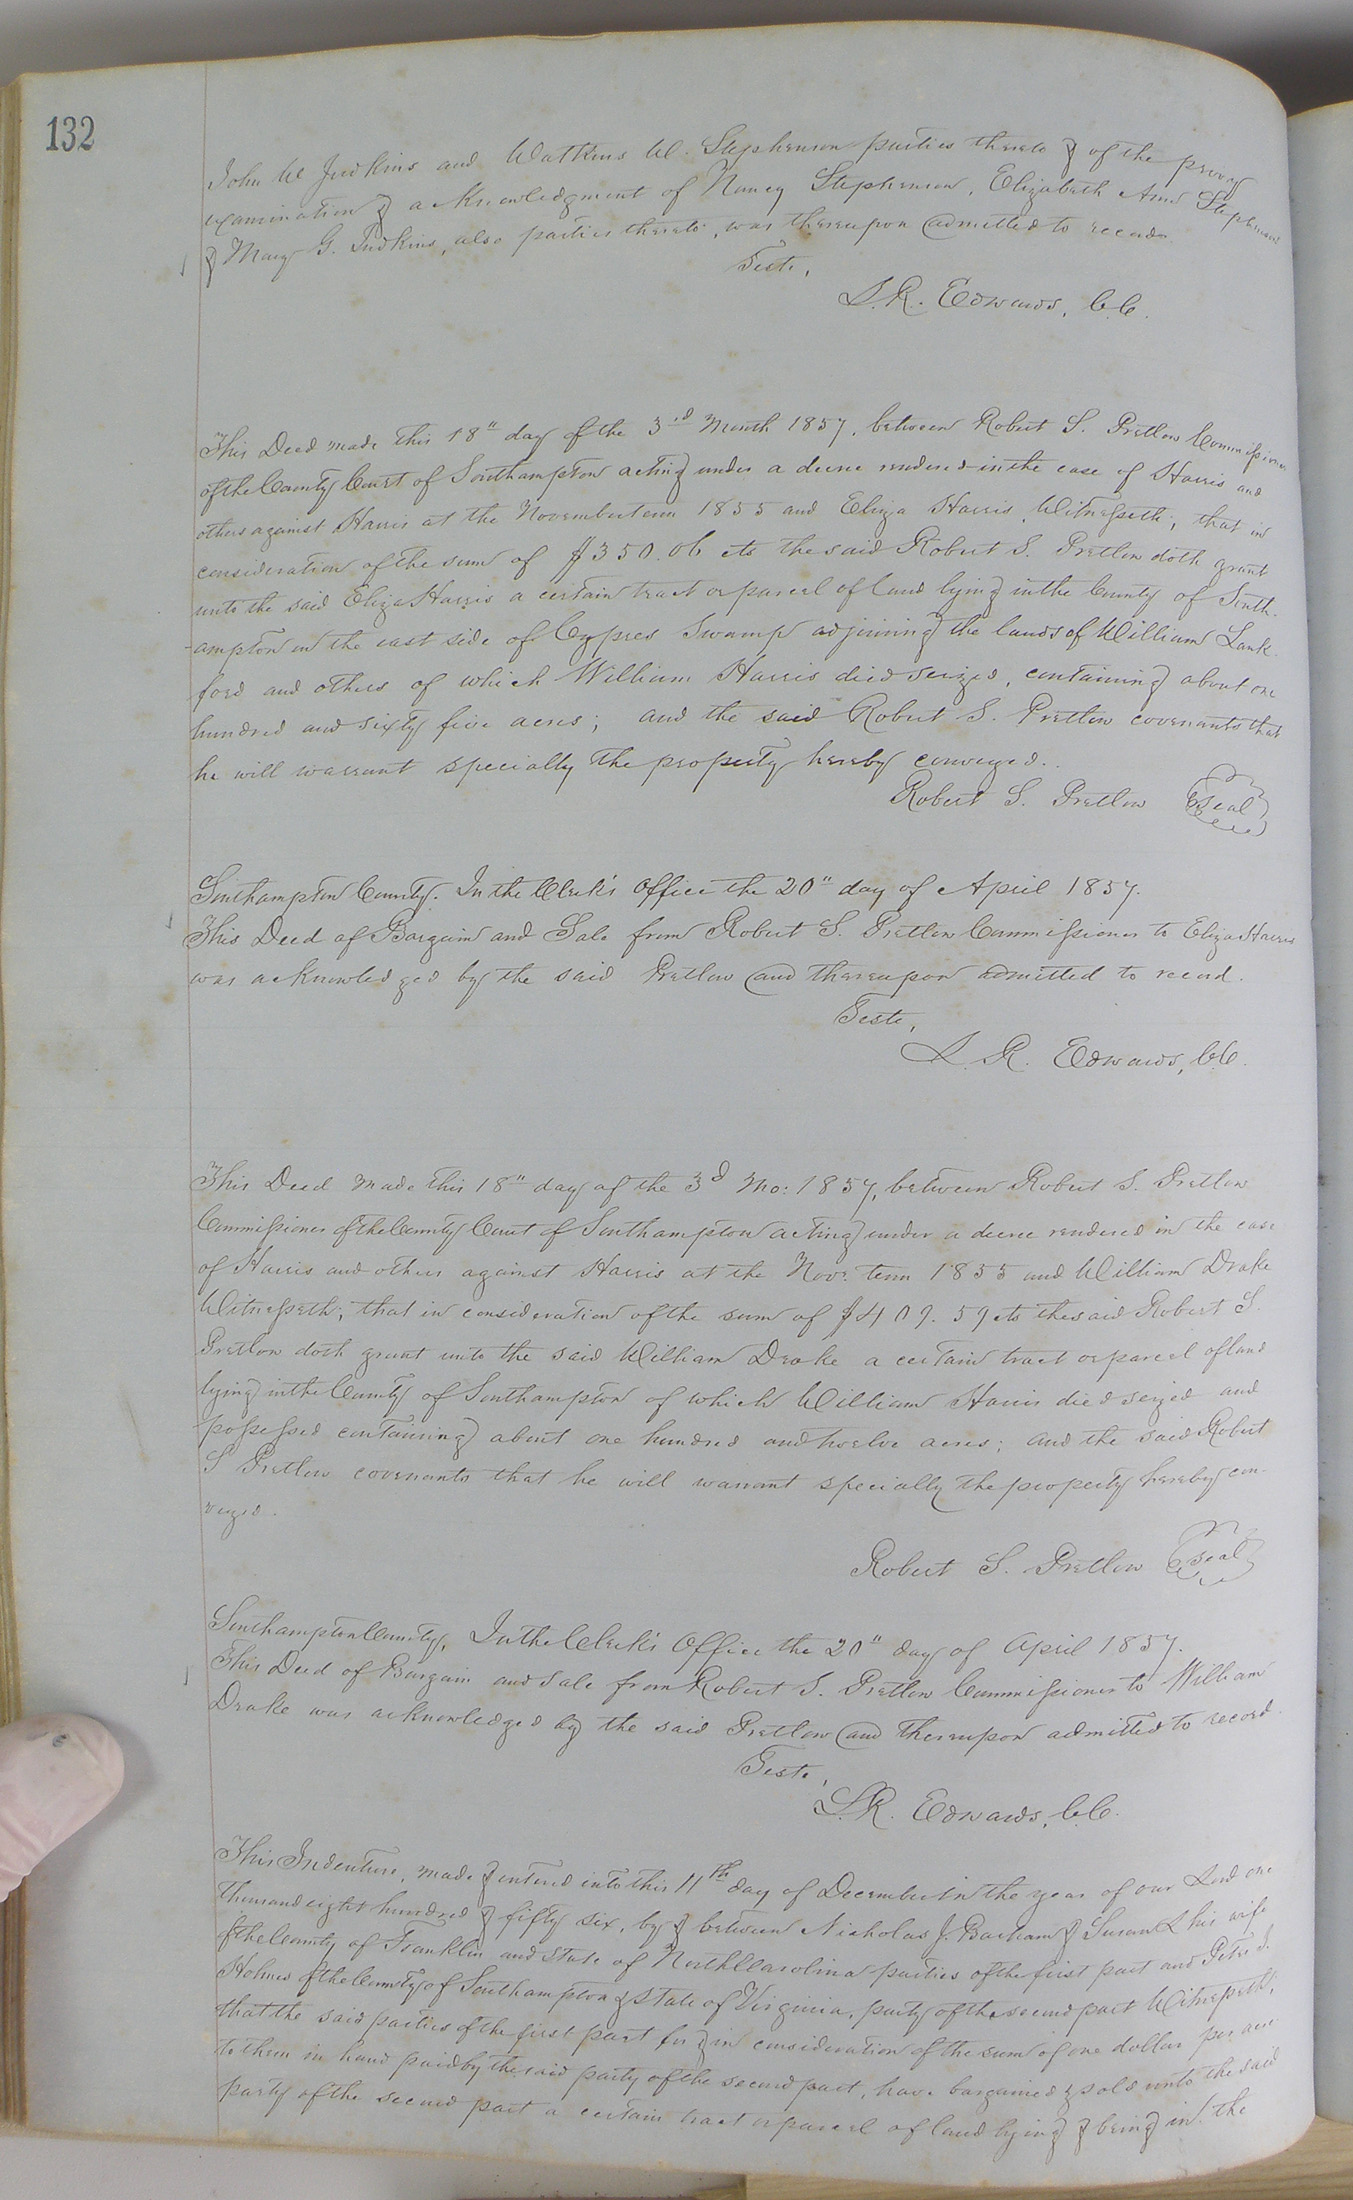 132
John W Judkins and Watkins W. Stephenson parties thereto & of the privy
examination & acknowledgment of Nancy Stephenson, Elizabeth Ann Stephenson
& Mary G. Judkins, also parties thereto, was thereupon admitted to record.
Teste,
L. R. Edwards, C.C.
This Deed made this 18" day of the 3rd Month 1857, between Robert S. Pretlow Commissioner
of the County Court of Southampton acting under a decree rendered in the case of Harris and
others against Harris at the November term 1855 and Eliza Harris, Witnesseth; that in
consideration of the sum of $350.06 cts the said Robert S. Pretlow doth grant
unto the said Eliza Harris a certain tract or parcel of land lying in the County of South-
ampton on the east side of Cypres Swamp adjoining the lands of William Lank-
ford and others of which William Harris died seized, containing about one
hundred and sixty five acres; and the said Robert S. Pretlow covenants that
he will warrant specially the property hereby conveyed.
Robert S. Pretlow Seal
Southampton County. In the Clerk's Office the 20" day of April 1857.
This Deed of Bargain and Sale from Robert S. Pretlow Commissioner to Eliza Harris
was acknowledged by the said Pretlow and thereupon admitted to record.
Teste,
L. R. Edwards, C.C.
This Deed made this 18" day of the 3d Mo: 1857, between Robert S. Pretlow
Commissioner of the County Court of Southampton acting under a decree rendered in the case
of Harris and others against Harris at the Novr. term 1855 and William Drake
Witnesseth; that in consideration of the sum of $409.59 cts the said Robert S.
Pretlow doth grant unto the said William Drake a certain tract or parcel of land
lying in the County of Southampton of which William Harris died seized and
possessed containing about one hundred and twelve acres; and the said Robert
S Pretlow covenants that he will warrant specially the property hereby con-
veyed.
Robert S. Pretlow Seal
Southampton County, In the Clerk's Office the 20" day of April 1857.
This Deed of Bargain and Sale from Robert S. Pretlow Commissioner to William
Drake was acknowledged by the said Pretlow and thereupon admitted to record.
Teste,
L. R. Edwards, C.C.
This Indenture, made & entered into this 11th day of December in the year of our Lord one
thousand eight hundred & fifty six, by & between Nicholas J. Barham & Susan L his wife
of the County of Franklin and State of North Carolina parties of the first part and Peter J.
Holmes of the County of Southampton & State of Virginia, party of the second part Witnesseth;
that the said parties of the first part for & in consideration of the sum of one dollar per acre
to them in hand paid by the said party of the second part, have bargained & sold unto the said
party of the second part a certain tract or parcel of land lying & being in the